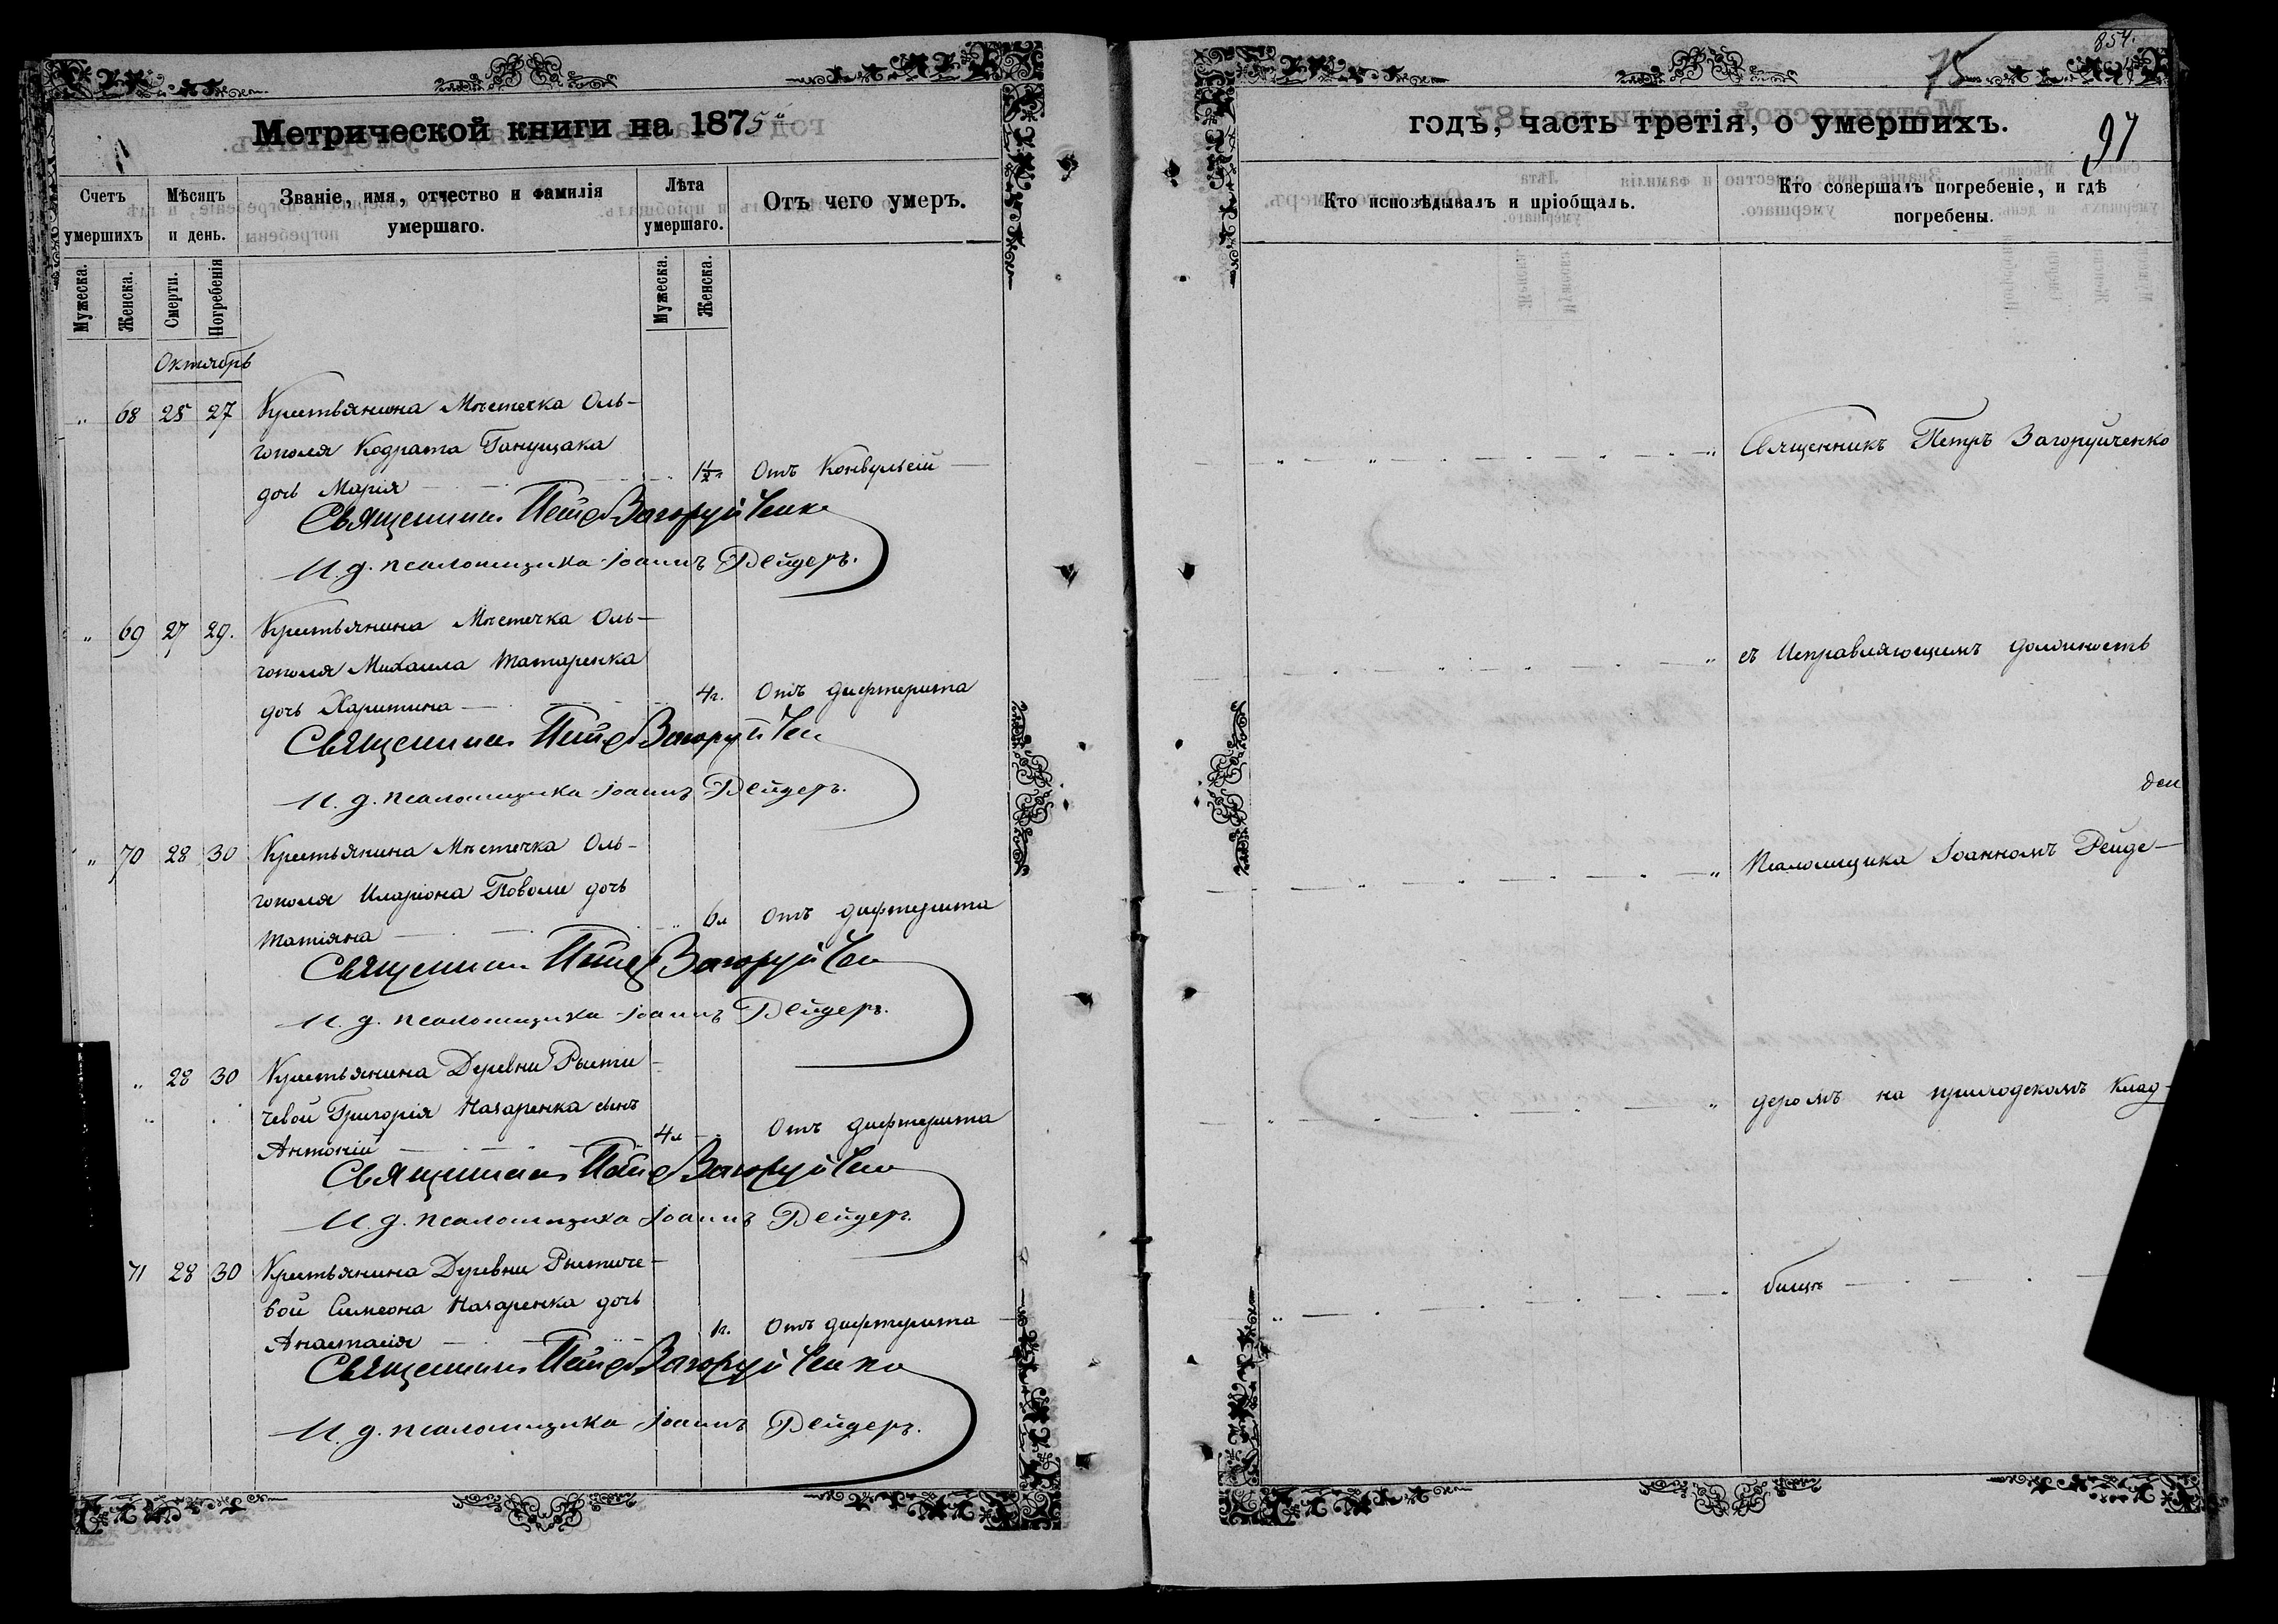 854.
75
97
Метрической книги на 1875
годъ, часть третія, о умершихъ.
Счетъ умершихъ
Мѣсяцъ и день.
Званіе, имя, отчество и фамилія умершаго.
Лѣта умершаго.
Отъ чего умеръ.
Кто исповѣдывалъ и пріобщалъ.
Кто совершалъ погребеніе, и гдѣ погребены.
Мужеска.
Женска.
Смерти.
Погребенія
Мужеска.
Женска.
Октябрь
„ 68 25 27 Крестьянина Мѣстечка Оль-
гополя Кодрата Ганущака
дочь Марія 1½ Отъ Конвульсій
Священникъ Петръ Загоруйченко
И. д. псаломщика Іоаннъ Дейдеръ.
„ 69 27 29. Крестьянина Мѣстечка Оль-
гополя Михаила Татаренка
дочь Харитина 4г. Отъ дифтерита
Священникъ Петръ Загоруйчен
И. д. псаломщика Іоаннъ Дейдеръ.
„ 70 28 30 Крестьянина Мѣстечка Оль-
гополя Иларіона Поволи дочь
Татіяна 6л Отъ дифтерита
Священникъ Петръ Загоруйчен
И. д. псаломщика Іоаннъ Дейдеръ.
„ 28 30 Крестьянина Деревни
Григорія Назаренка сынъ
Антоній 4л Отъ дифтерита
Священникъ Петръ Загоруйчен
И. д. псаломщика Іоаннъ Дейдеръ.
71 28 30 Крестьянина Деревни
вой Симеона Назаренка дочь
Анастасія 1г. Отъ дифтерита
Священникъ Петръ Загоруйченко
И. д. псаломщика Іоаннъ Дейдеръ.
Священникъ Петръ Загоруйченко
съ Исправляющимъ должность
Псаломщика Іоанномъ
деромъ на приходскомъ Клад-
бищѣ